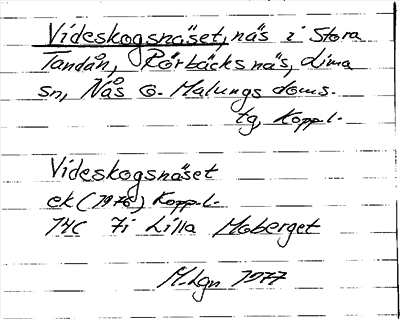 Videskogsnäset, näs i Stora
Tandån, Rörbäcksnäs, Lima
sn, Nås o. Malungs doms.
tg, Kopp.l.
Videskogsnäset
ek (1976) Kopp.l.
14C 7i Lilla Moberget
M.Lgn 1977